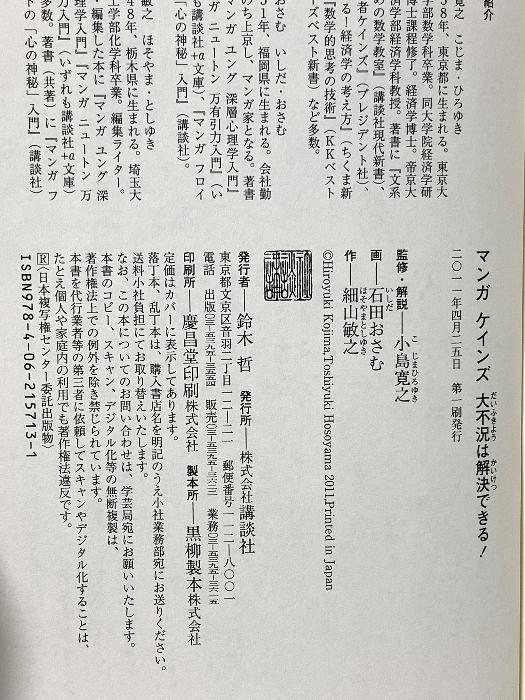 紹介
寛之 こじま・ひろゆき
58年、東京都に生まれる。東京大
学部数学科卒業。同大学院経済学研
博士課程修了。経済学博士。帝京大
済学部経済学科教授。著書に『文系
めの数学教室』（講談社現代新書）、
者ケインズ』（プレジデント社）、
る！経済学の考え方』（ちくま新
『数学的思考の技術』（ＫＫベスト
ーズベスト新書）など多数。
おさむ いしだ・おさむ
51年、福岡県に生まれる。会社勤
のち上京し、マンガ家となる。著書
マンガ ユング 深層心理学入門』
ンガ ニュートン 万有引力入門』（い
も講談社＋α文庫）、『マンガ フロイ
「心の神秘」入門』（講談社）。
敏之 ほそやま・としゆき
48年、栃木県に生まれる。埼玉大
工学部化学科卒業。編集ライター。
・編集した本に『マンガ ユング 深
理学入門』『マンガ ニュートン 万
力入門』（いずれも講談社＋α文庫）
多数。著書（共著）に『マンガ フ
トの「心の神秘」入門』（講談社）
マンガ ケインズ 大不況は解決できる！
だいふきよう かいけつ
二〇一一年四月二五日 第一刷発行
監修・解説──小島寛之
こじまひろゆき
画──石田おさむ
いしだ
作──細山敏之
ほそやまとしゆき
©Hiroyuki Kojima,Toshiyuki Hosoyama 2011,Printed in Japan
発行者──鈴木 哲 発行所──株式会社講談社
東京都文京区音羽二丁目一二─二一 郵便番号一一二─八〇〇一
電話 出版 販売 業務
印刷所──慶昌堂印刷株式会社 製本所──黒柳製本株式会社
定価はカバーに表示してあります。
落丁本、乱丁本は、購入書店名を明記のうえ小社業務部宛にお送りください。
送料小社負担にてお取り替えいたします。
なお、この本についてのお問い合わせは、学芸局宛にお願いいたします。
本書のコピー、スキャン、デジタル化等の無断複製は、
著作権法上での例外を除き禁じられています。
本書を代行業者等の第三者に依頼してスキャンやデジタル化することは、
たとえ個人や家庭内の利用でも著作権法違反です。
Ⓡ〈日本複写権センター委託出版物〉
ISBN978-4-06-215713-1